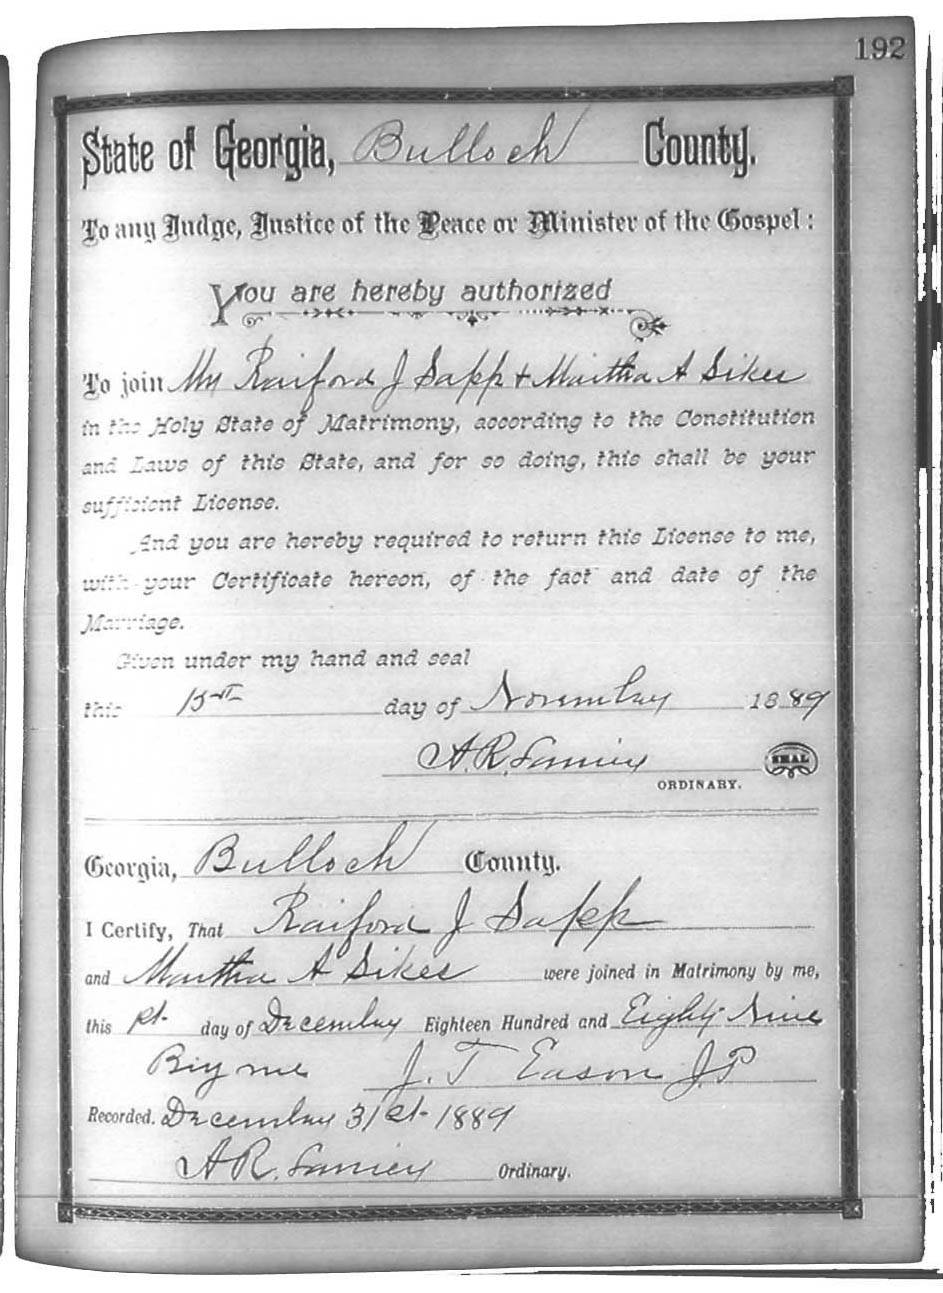 192
State of Georgia, Bulloch County.
To any Judge, Justice of the Peace or Minister of the Gospel:
You are hereby authorized
To join Mr Raiford J Sapp & Martha A Sikes
in the Holy State of Matrimony, according to the Constitution
and Laws of this State, and for so doing, this shall be your
sufficient License.
And you are hereby required to return this License to me,
with your Certificate hereon, of the fact and date of the
Marriage.
Given under my hand and seal
this 15th day of November 1889
A.R. Lanier SEAL
ORDINARY.
Georgia, Bulloch County.
I Certify, That Raiford J Sapp
and Martha A Sikes were joined in Matrimony by me,
this 1st day of December Eighteen Hundred and Eighty Nine
By me J. T Eason J.P
Recorded. December 31st 1889
A.R. Lanier Ordinary.